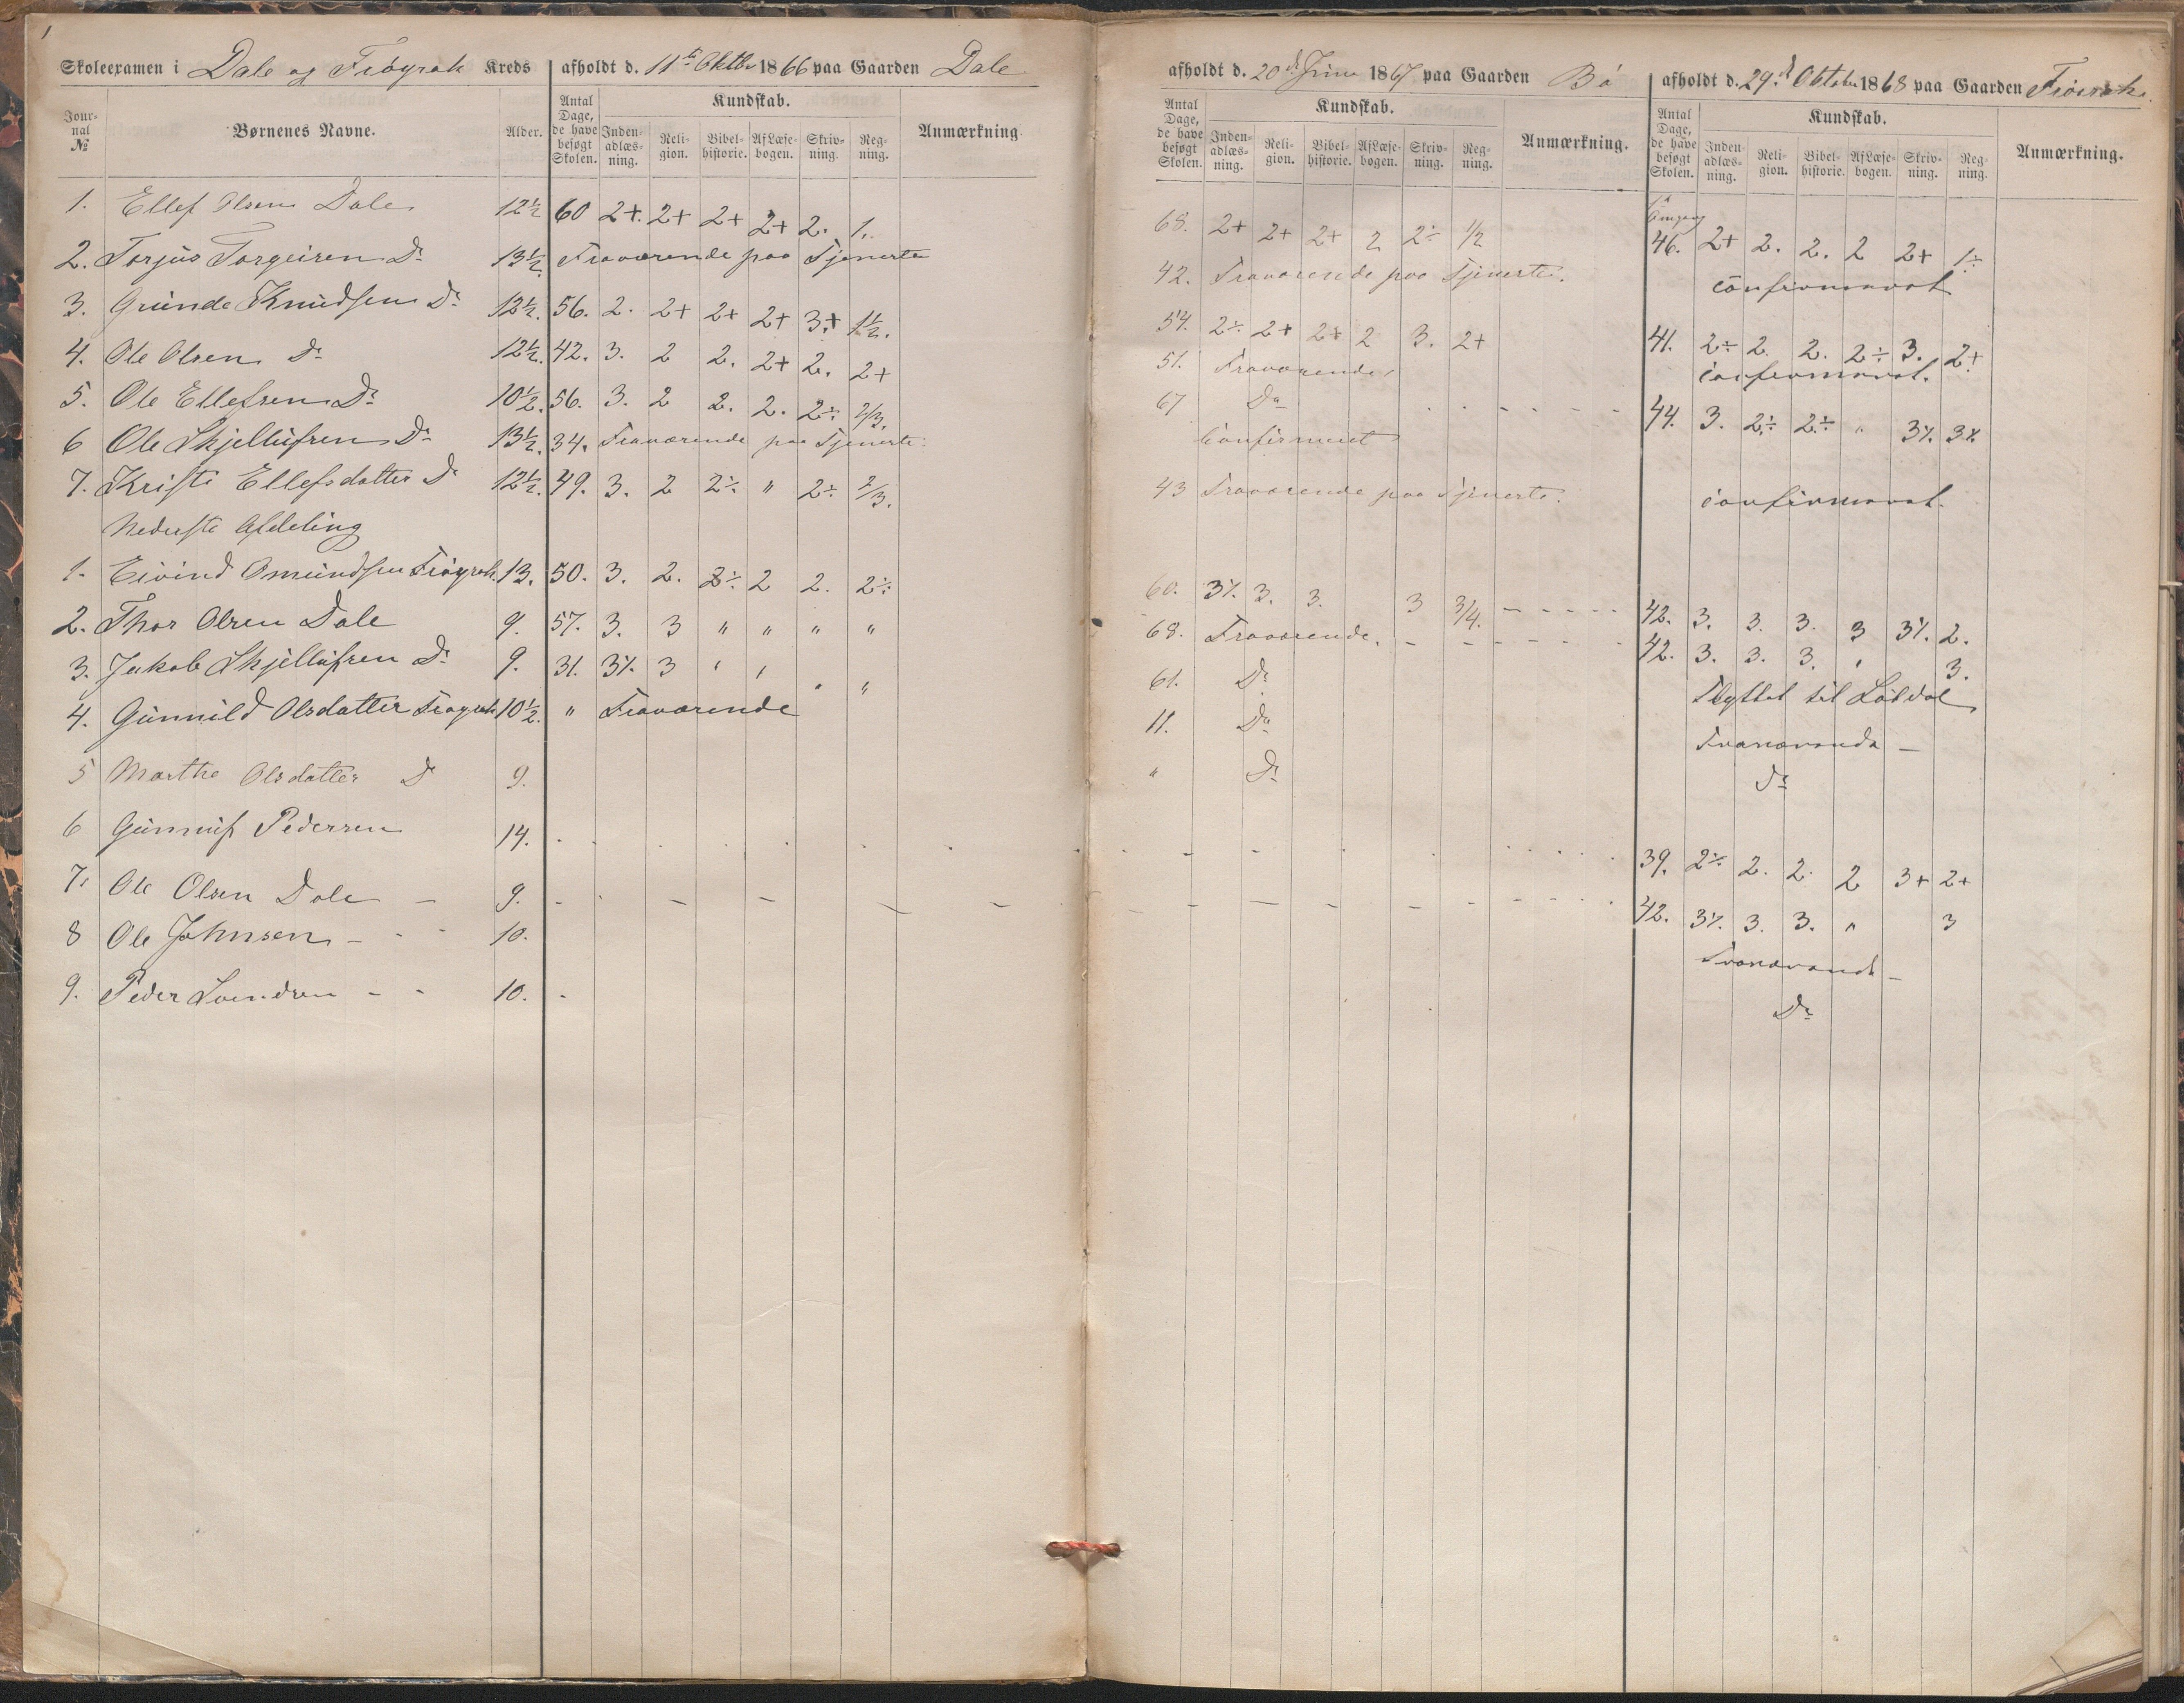 1
Skoleexamen i Dale og Frøyrak Kreds afholdt d. 11te Oktbr 1866 paa Gaarden Dale
Journal № Børnenes Navne. Alder. Antal Dage, de have besøgt Skolen. Kundskab. Indenadlæsning. Religion. Bibelhistorie. Af Læsebogen. Skrivning. Regning. Anmærkning.
1. Ellef Olsen Dale 12½ 60 2+. 2+ 2+ 2+ 2. 1.
2. Torjus Torgeirsen Do 13½. Fraværende paa Tjeneste
3. Gunde Knudsen Do 12½. 56. 2. 2+ 2+ 2+ 3+ 1½.
4. Ole Olsen Do 12½. 42. 3. 2 2. 2+ 2. 2+
5. Ole Ellefsen Do 10½. 56. 3. 2 2. 2. 2÷ 2/3.
6 Ole Skjellufsen Do 13½. 34. Fraværende paa Tjeneste.
7. Kristi Ellefsdatter Do 12½. 49. 3. 2 2÷ " 2÷ 2/3.
Nederste Afdeling
1. Eivind Omundsen Frøyrak. 13. 50. 3. 2. 2÷ 2 2. 2÷
2. Thor Olsen Dale 9. 57. 3. 3 " " " "
3. Jakob Skjellufsen Do 9. 31. 3⁒ 3 " " " "
4. Gunnild Olsdatter Frøyrak 10½. " Fraværende
5 Marthe Olsdatter Do 9.
6 Gunnuf Pedersen 14.
7. Ole Olsen Dale – 9.
8 Ole Johnsen – 10.
9. Peder Svendsen – 10.
afholdt d. 20de Juni 1867 paa Gaarden Bø
Antal Dage, de have besøgt Skolen. Kundskab. Indenadlæsning. Religion. Bibelhistorie. Af Læsebogen. Skrivning. Regning. Anmærkning.
68. 2+ 2+ 2+ 2 2÷ ½
42. Fraværende paa Tjeneste.
54. 2÷ 2+ 2+ 2 3. 2+
51. Fraværende
67 Do
Confirmeret
43 Fraværende paa Tjeneste.
60. 3⁒ 3. 3. 3 3/4.
68. Fraværende.
61. Do
11. Do
" Do
afholdt d. 29de Oktober 1868 paa Gaarden Frøirak.
Antal Dage, de have besøgt Skolen. Kundskab. Indenadlæsning. Religion. Bibelhistorie. Af Læsebogen. Skrivning. Regning. Anmærkning.
46. 2+ 2. 2. 2 2+ 1÷
Confirmeret
41. 2÷ 2. 2. 2÷ 3. 2+
Confirmeret.
44. 3. 2÷ 2÷ " 3⁒ 3⁒
Confirmeret.
42. 3. 3. 3. 3 3⁒ 2.
42. 3. 3. 3. " 3.
Flyttet til
Fraværende –
Do
39. 2÷ 2. 2. 2 3+ 2+
42. 3⁒ 3. 3. " 3
Fraværende –
Do